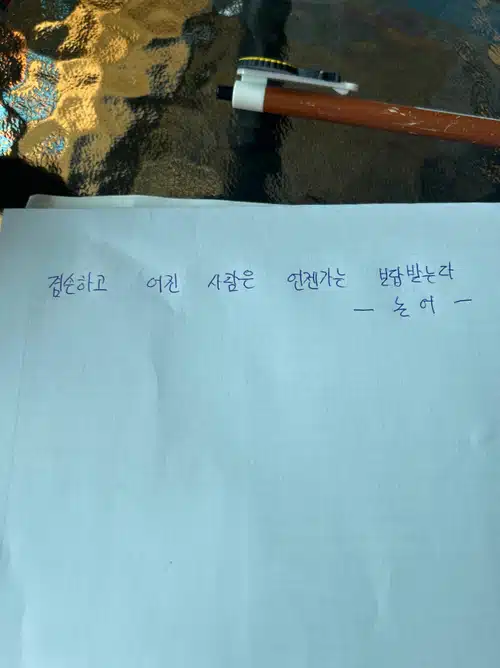 겸손하고 어진 사람은 언젠가는 보답받는다
— 논어 —